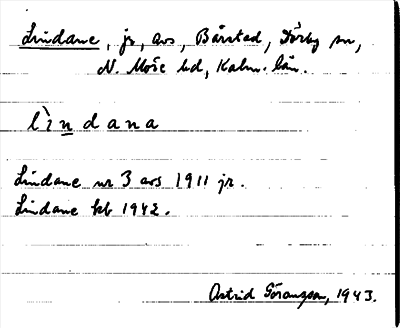 Lindane, jr, avs, Bårstad, Dörby sn,
N. Möre hd, Kalm. län.
lìndana
Lindane nr 3 avs 1911 jr.
Lindane kb 1942.
Astrid Göransson, 1943.